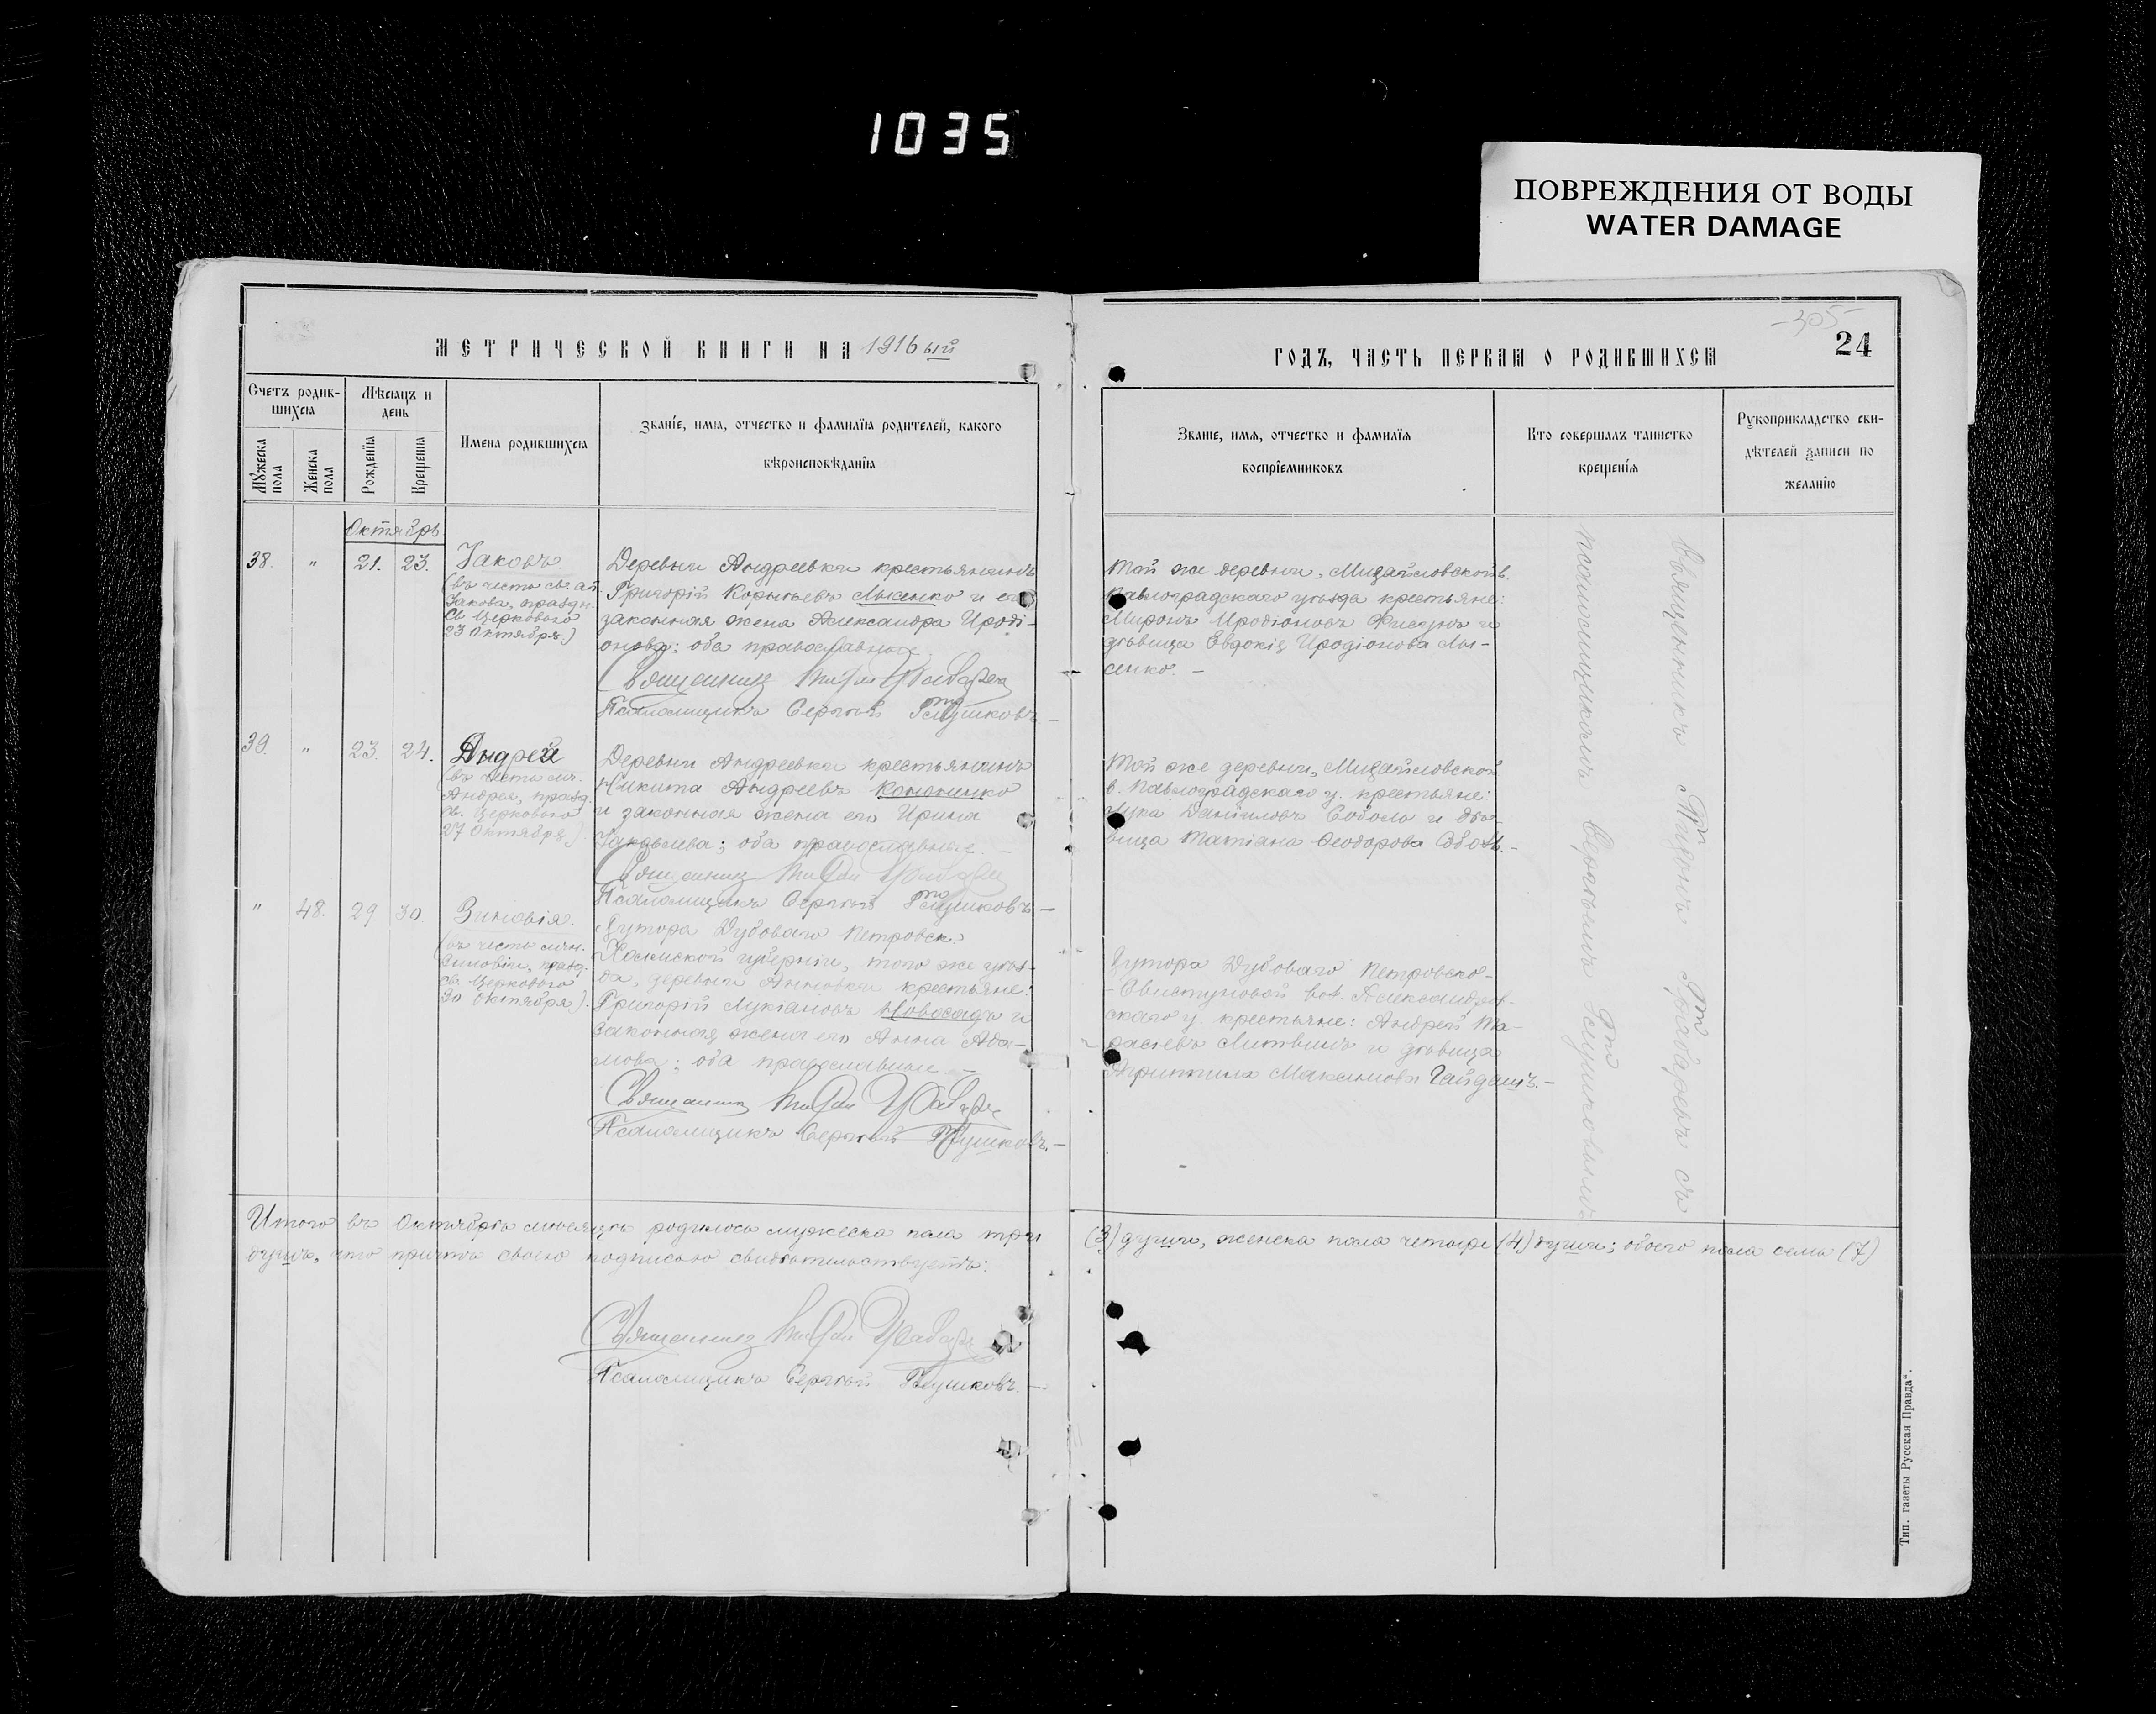 1035
ПОВРЕЖДЕНИЯ ОТ ВОДЫ
WATER DAMAGE
МЕТРИЧЕСКОЙ КНИГИ НА 1916ый
Счетъ родив-
шихся
Мѣсяцъ и
день
Мужеска
пола
Женска
пола
Рожденія
Крещенія
Имена родившихся
Званіе, имя, отчество и фамилія родителей, какого
вѣроисповѣданія
Октябрь
38. " 21. 23. Іаковъ.
(въ честь св. ап.
Іакова, праздн.
Св. Церковью
23 Октября.)
Деревни Андреевки крестьянинъ
Григорій Лысенко и его
законная жена Александра Ироді-
онова; оба православные.
Священникъ
Псаломщикъ Сергѣй
39. " 23. 24. Андрей
(въ честь муч.
Андрея, празд.
св. Церковью
27 Октября).
Деревни Андреевки крестьянинъ
Никита Андреевъ Кононенко
и законная жена его Ирина
Іаковлева; оба православные. —
Священникъ
Псаломщикъ Сергѣй
" 48. 29. 30. Зиновія.
(въ честь муч.
Зиновіи, празд.
св. Церковью
30 Октября).
Хутора Дубоваго Петровск.
Холмской губерніи, того же уѣз-
да, деревни Анновки крестьяне:
Григорій Лукіановъ Новосадъ и
законная жена его Анна Ада-
мова; оба православные —
Священникъ
Псаломщикъ Сергѣй
Итого въ Октябрѣ мѣсяцѣ родилось мужеска пола три
душъ, что причтъ своею подписью свидѣтельствуетъ:
Священникъ
Псаломщикъ Сергѣй
-305-
24
ГОДЪ, ЧАСТЬ ПЕРВАЯ О РОДИВШИХСЯ
Званіе, имя, отчество и фамилія
воспріемниковъ
Кто совершалъ таинство
крещенія
Рукоприкладство сви-
дѣтелей записи по
желанію
Той же деревни, Михайловской в.
Павлоградскаго уѣзда крестьяне:
Миронъ Иродіоновъ и
дѣвица Евдокія Иродіонова Лы-
сенко. —
Той же деревни, Михайловской
в. Павлоградскаго у. крестьяне:
Лука Даніиловъ Соболь и дѣ-
вица Татіана Ѳеодорова —
Хутора Дубоваго Петровско-
-Свистуновой вол. Александров-
скаго у. крестьяне: Андрей Та-
расіевъ Литвинъ и дѣвица
Агриппина Максимова Гайдашъ. —
Священникъ съ
псаломщикомъ Сергѣемъ
(3) души, женска пола четыре (4) души; обоего пола семь (7)
Тип. газеты Русская Правда".